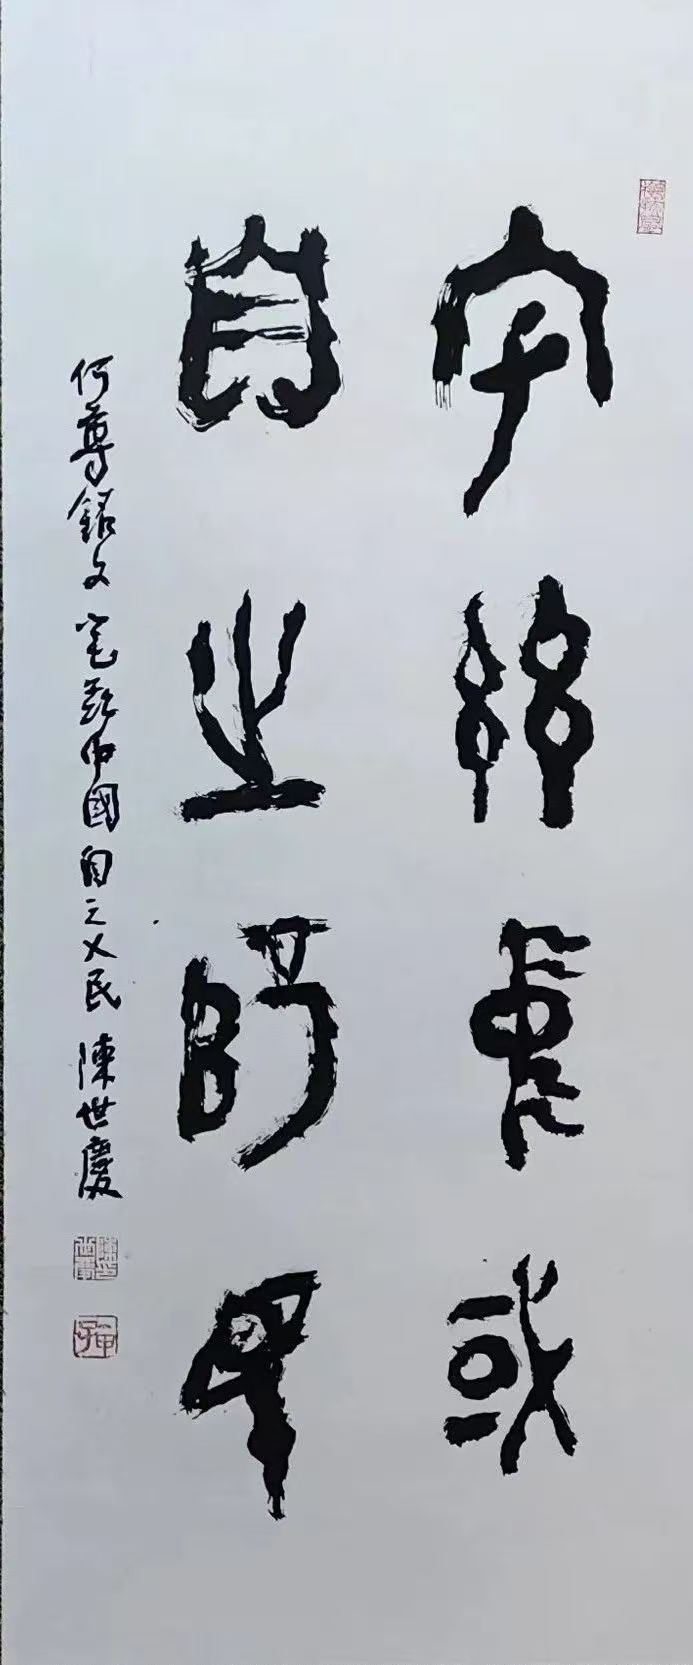 宅茲中或
自之辥民
何尊銘文 宅茲中國 自之乂民 陳世慶